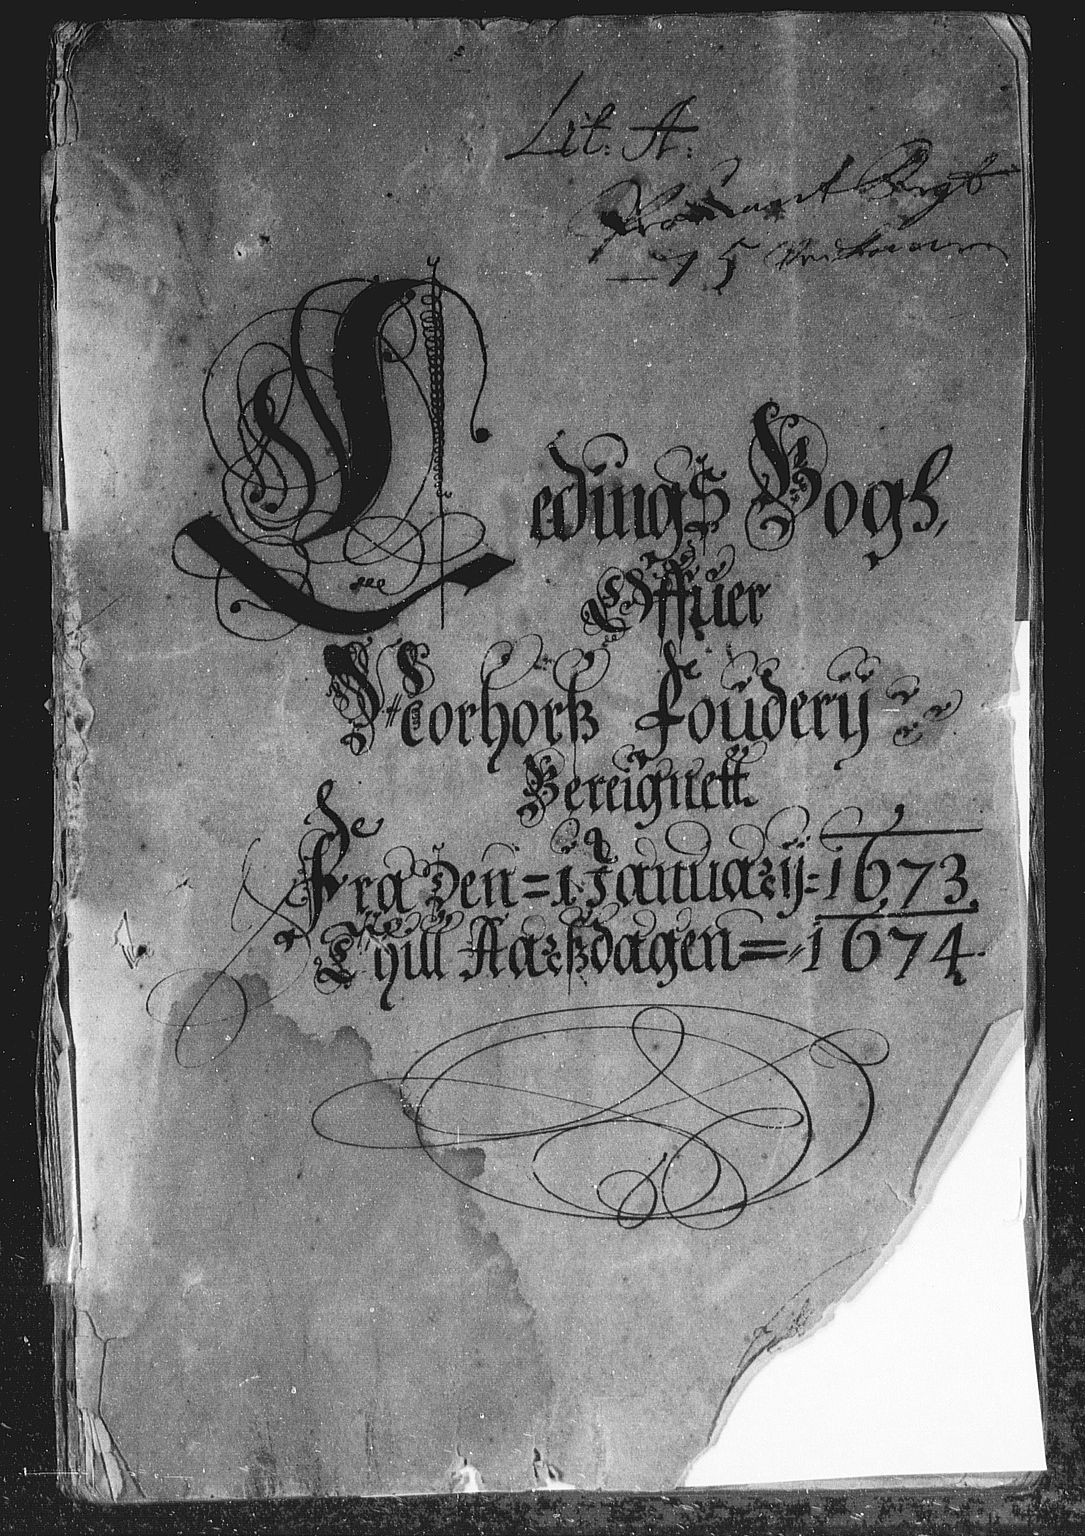 Lit: A:
75
Ledings Bogh,
Offuer
Norhorß Fouderij
Bereignett.
Fra Den = 1 Januarij = 1673,
Thill Aarßdagen = 1674